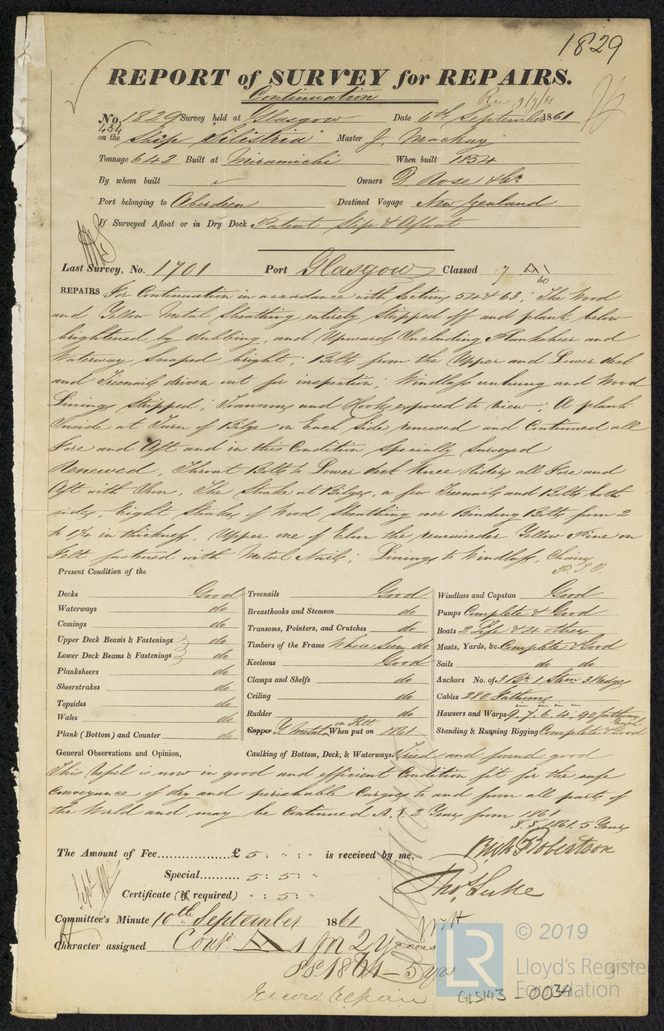 1829
REPORT of SURVEY for REPAIRS.
Continuation
No. 1829 Survey held at Glasgow Date 6th September 1861
on the Ship "Silistria" Master J. Mackay
Tonnage 642 Built at Miramichi When built 1854
By whom built Owners D Rose & Co.
Port belonging to Aberdeen Destined Voyage New Zealand
If Surveyed Afloat or in Dry Dock Patent Slip & Afloat
Last Survey, No. 1701 Port Glasgow Classed 7 A 1
60
REPAIRS For Continuation in accordance with Sections 54 & 63; The Wood
and Yellow Metal Sheathing entirely Stripped off and plank below
brightened by dubbing, and Upwards Including Planksheer and
Waterway Scraped bright; Bolts from the Upper and Lower deck
and Treenails driven out for inspection; Windlass unhung and Wood
Linings Stripped; Transoms and Hooks exposed to view; A plank
Inside at Turn of Bilge on Each Side removed and Continued all
Fore and Aft and in this Condition Specially Surveyed
Renewed, Throat Bolts to Lower deck Knee Riders all Fore and
Aft with Iron, The Strake at Bilges, a few Treenails and Bolts both
sides, bright Strakes of Wood Sheathing over Binding Bolts from 2
to 1¼ in thickness, Upper one of Elm the remainder Yellow Pine on
Felt fastened with Metal Nails; Linings to Windlass,
P.T.O.
Present Condition of the
Decks Good
Waterways do
Comings do
Upper Deck Beams & Fastenings do
Lower Deck Beams & Fastenings do
Planksheers do
Sheerstrakes do
Topsides do
Wales do
Plank (Bottom) and Counter do
Treenails Good
Breasthooks and Stemson do
Transoms, Pointers, and Crutches do
Timbers of the Frame Where Seen do
Keelsons Good
Clamps and Shelfs do
Ceiling do
Rudder do
Copper Y Metal on Felt When put on 1861
Caulking of Bottom, Deck, & Waterways Tried and found good
Windlass and Capstan Good
Pumps Complete & Good
Boats 2 Life & 4 others
Masts, Yards, &c. Complete & Good
Sails do do
Anchors No. of 3 Br 1 Strm 2 Kedges
Cables 280 Fathoms
Hawsers and Warps 9, 7, 6, 4, 90 fathoms
Standing & Running Rigging Complete & Good
General Observations and Opinion,
This Vessel is now in good and efficient Condition fit for the safe
Conveyance of dry and perishable Cargoes to and from all parts of
the World and may be Continued A.1. 2 Years from 1861
S.S 1861, 5 Years
The Amount of Fee £ 5 : is received by me,
Special 5 : 5 :
Certificate (if required) : 5 :
Robertson
Thos. Luke
Committee's Minute 10th September 1861
Character assigned Contd. A 1 for 2 years
SS 1861 - 5 yrs
Record Repairs
© 2019
LR
Lloyd's Register
Foundation
GLS143 - 0034